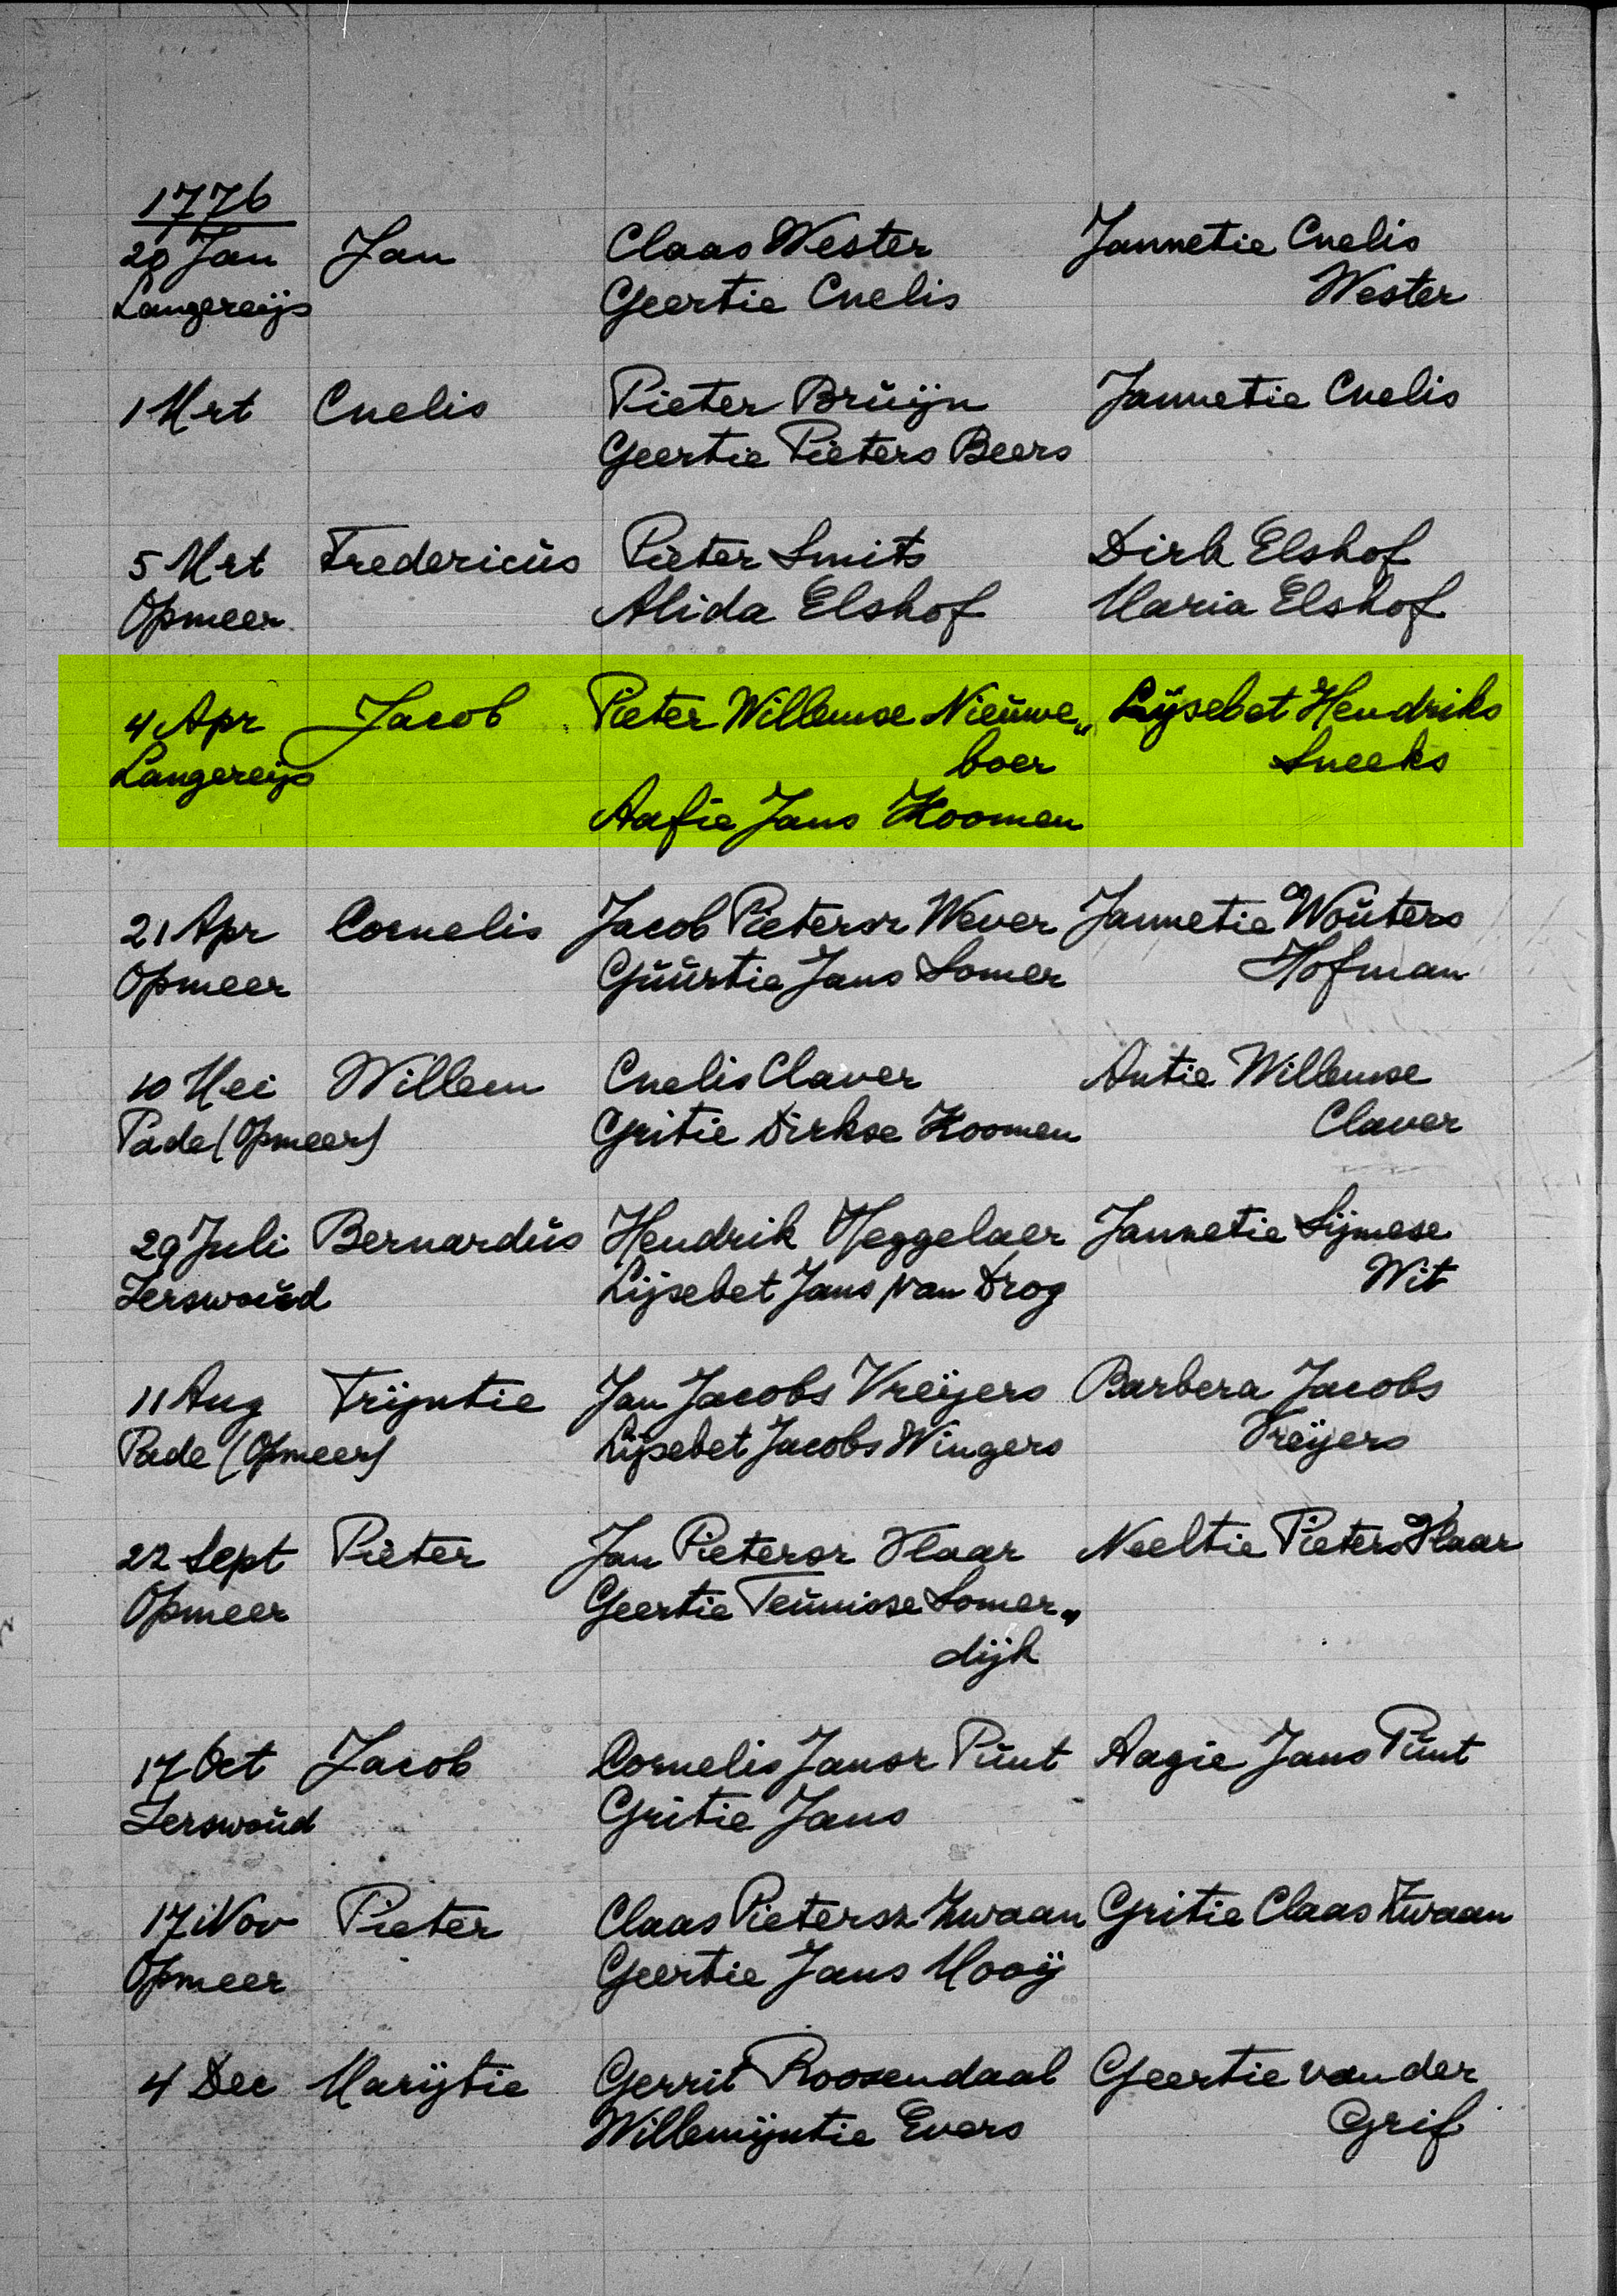 1776
20 Jan Jan Claas Wester Jannetie Cnelis
Langereijs Geertie Cnelis Wester
1 Mrt Cnelis Pieter Brŭijn Jannetie Cnelis
Geertie Pieters Beers
5 Mrt Fredericŭs Pieter Smits Dirk Elshof
Opmeer Alida Elshof Maria Elshof
4 Apr Jacob Pieter Willemse Nieŭwe„ Lijsebet Hendriks
Langereijs boer Sneeks
Aafie Jans Koomen
21 Apr Cornelis Jacob Pietersz Wever Jannetie Woŭters
Opmeer Gŭŭrtie Jans Somer Hofman
10 Mei Willem Cnelis Claver Antie Willemse
Pade (Opmeer) Gritie Dirkse Koomen Claver
29 Juli Bernardŭs Hendrik Meggelaer Jannetie Sijmese
Zerswoŭd Lijsebet Jans van Drog Wit
11 Aug Trijntie Jan Jacobs Vreijers Barbera Jacobs
Pade (Opmeer) Lijsebet Jacobs Wingers Vreijers
22 Sept Pieter Jan Pietersz Vlaar Neeltie Pieters Vlaar
Opmeer Geertie Teŭnisse Somer„
dijk
17 Oct Jacob Cornelis Jansz Pŭnt Aagie Jans Pŭnt
Zerswoŭd Gritie Jans
17 Nov Pieter Claas Pietersz Zwaan Gritie Claas Zwaan
Opmeer Geertie Jans Mooij
4 Dec Marijtie Gerrit Roosendaal Geertie van der
Willemijntie Evers Grif